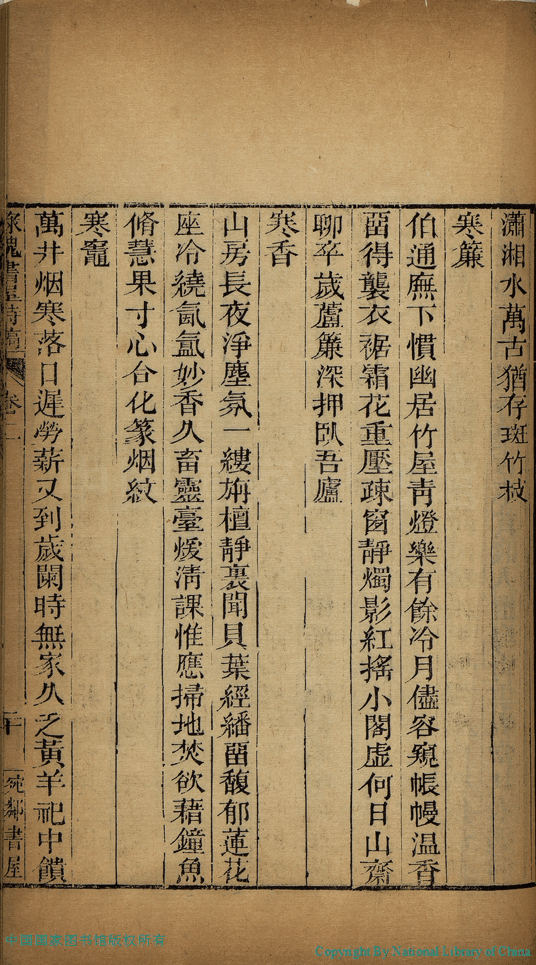 瀟湘水萬古猶存斑竹枝
寒簾
伯通廡下慣幽居竹屋靑燈樂有餘冷月儘容窺帳幔温香
畱得襲衣裾霜花重壓疎窗靜燭影紅搖小閣虛何日山齋
聊卒歲蘆簾深押臥吾廬
寒香
山房長夜淨塵氛一縷旃檀靜裏聞貝葉經繙畱馥郁蓮花
座冷繞氤氳妙香久畜靈臺煖淸課惟應掃地焚欲藉鐘魚
脩慧果寸心合化篆烟紋
寒竈
萬井烟寒落日遲勞薪又到歲闌時無家久乏黃羊祀中饋
媿書屋詩稿 卷二 二十 宛鄰書屋
中國國家图书馆版权所有
Copyright By National Library of China